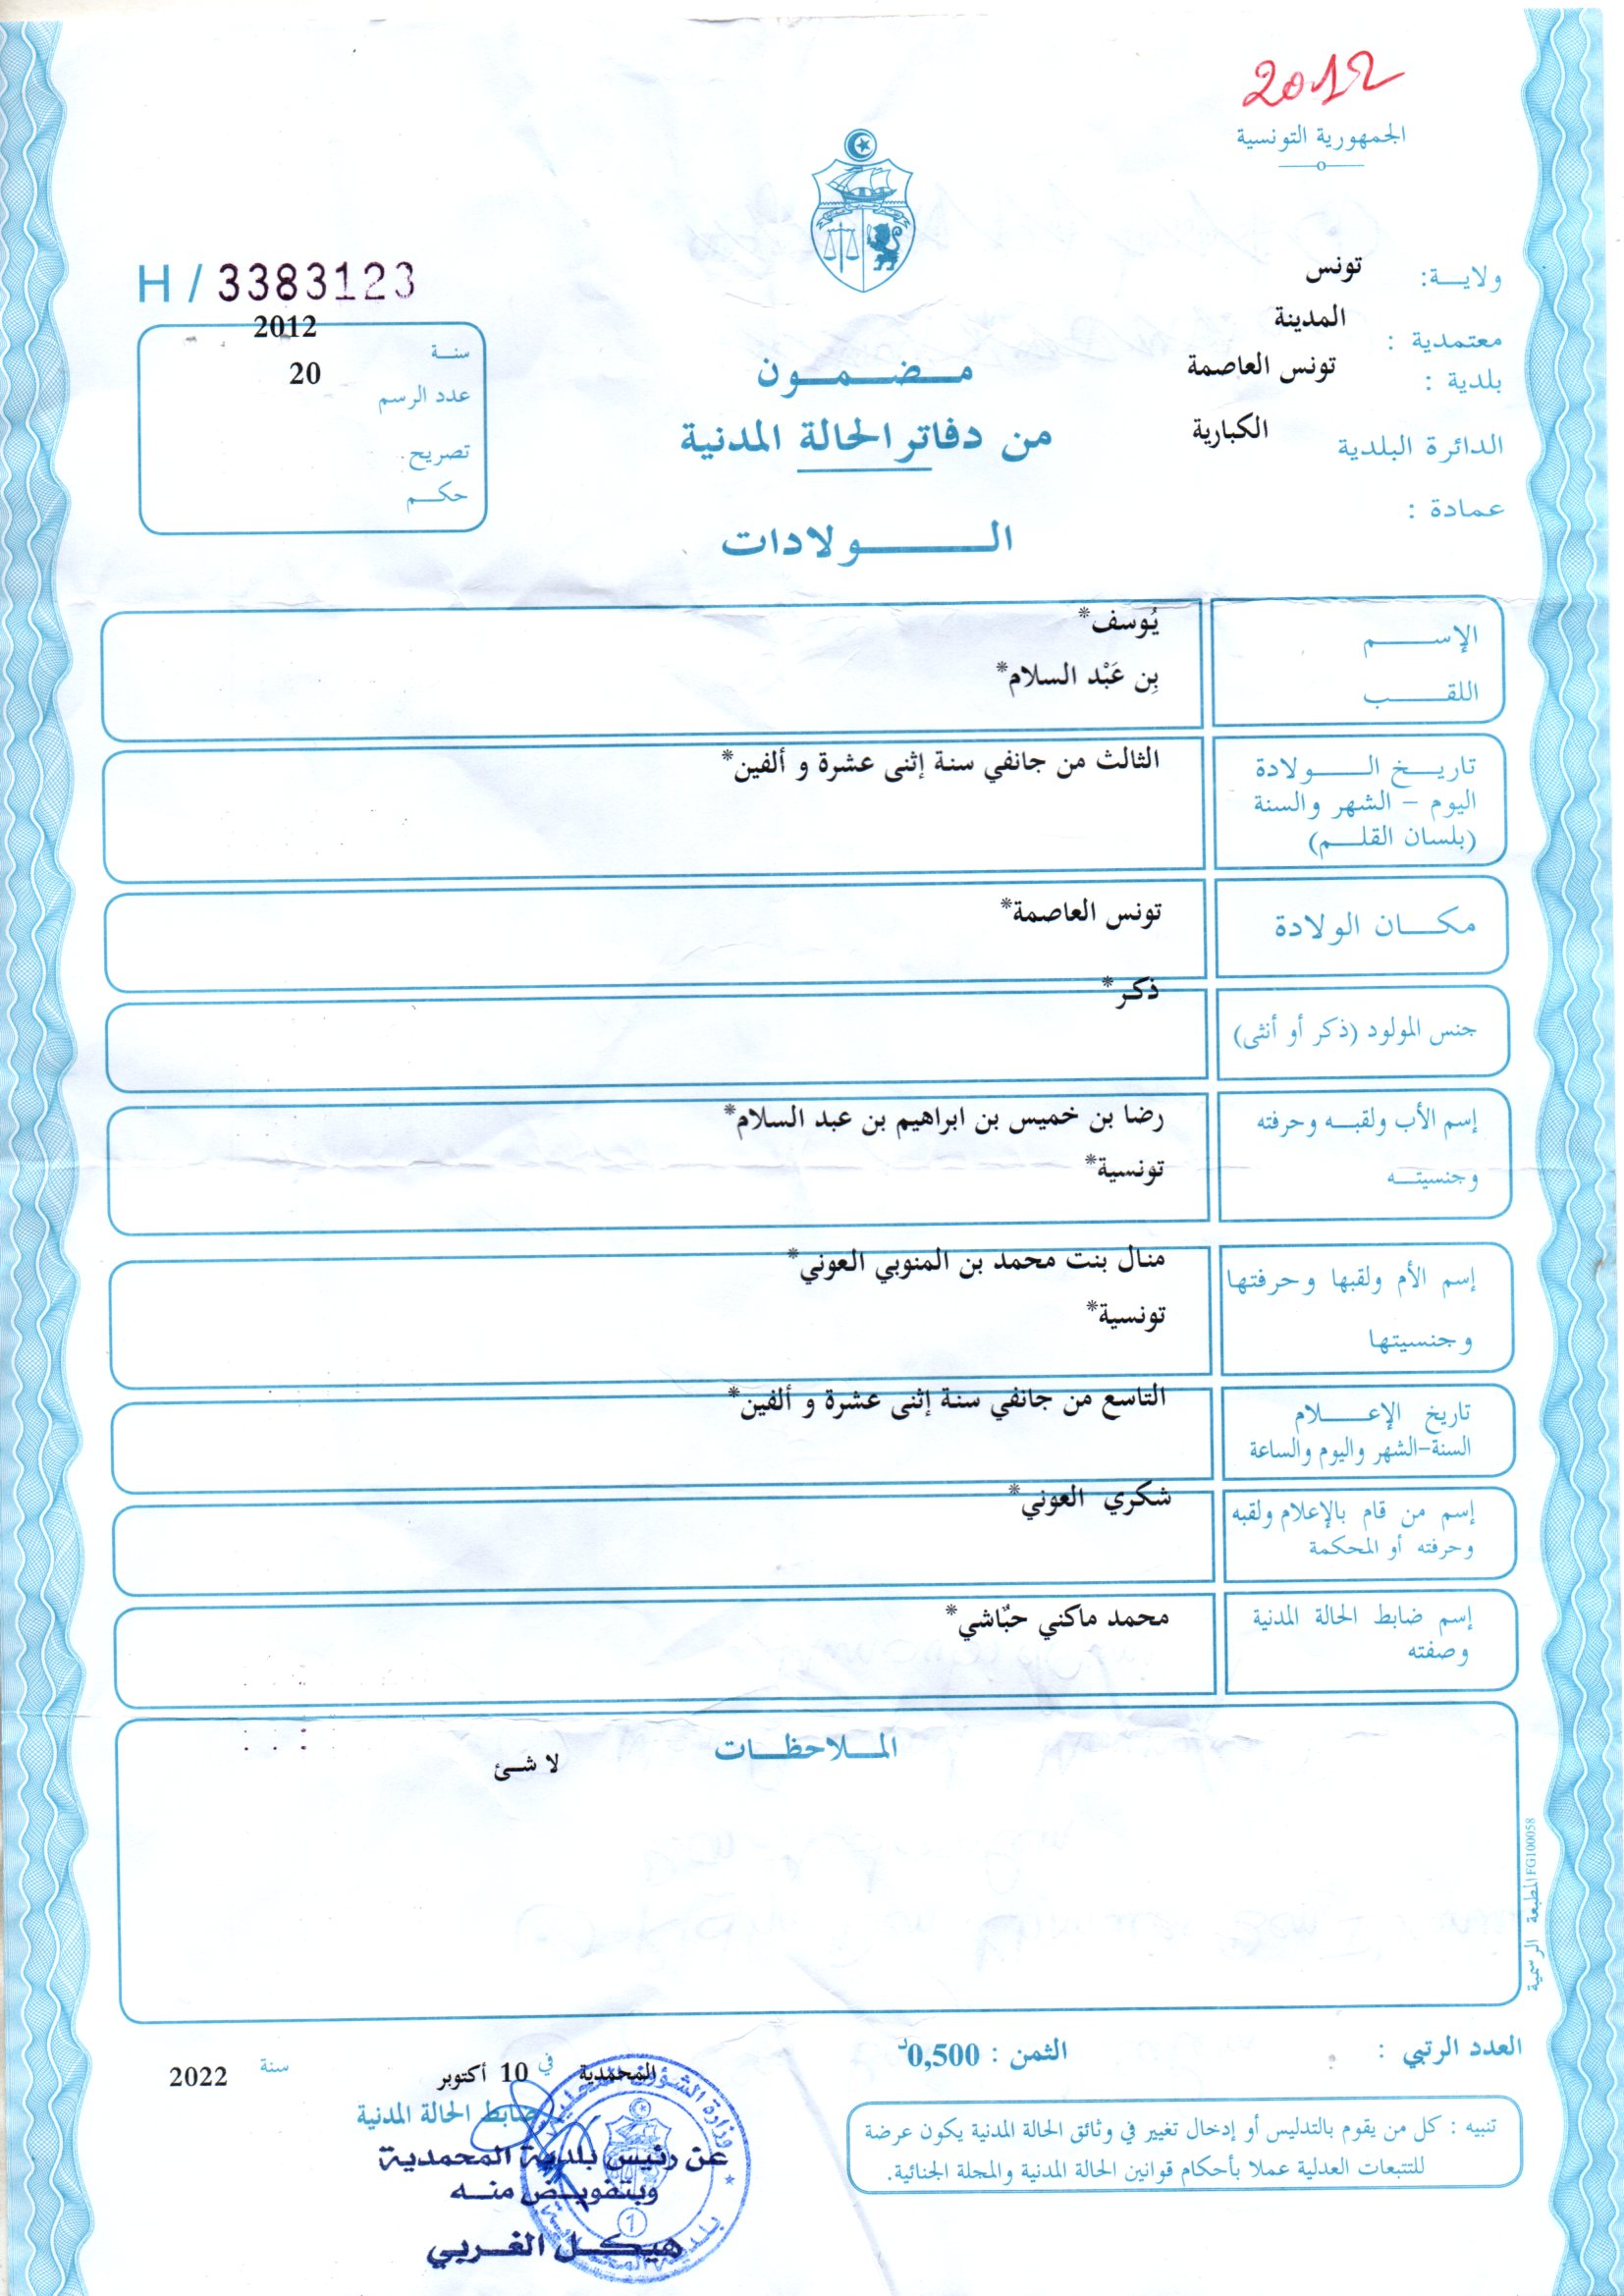 2012
الجمهورية التونسية
ولايــة: تونس
معتمدية : المدينة
بلدية : تونس العاصمة
الدائرة البلدية الكبارية
عمادة :
H / 3383123
سنــة 2012
عدد الرسم 20
تصريح
حكــم
مـضـمـون
من دفاتر الحالة المدنية
الــولادات
الإســـم يُوسف*
اللقـــب بِن عَبْد السلام*
تاريــخ الـــولادة
اليوم – الشهر والسنة
(بلسان القلــم)
الثالث من جانفي سنة إثنى عشرة و ألفين*
مكــان الولادة تونس العاصمة*
جنس المولود (ذكر أو أنثى) ذكر*
إسم الأب ولقبــه وحرفته رضا بن خميس بن ابراهيم بن عبد السلام*
وجنسيتــه تونسية*
إسم الأم ولقبها وحرفتها منال بنت محمد بن المنوبي العوني*
وجنسيتها تونسية*
تاريخ الإعـــلام
السنة-الشهر واليوم والساعة
التاسع من جانفي سنة إثنى عشرة و ألفين*
إسم من قام بالإعلام ولقبه
وحرفته أو المحكمة
شكري العوني*
إسم ضابط الحالة المدنية
وصفته
محمد ماكني حبّاشي*
المـلاحظـات
لا شئ
المطبعة الرسمية FG100058
العدد الرتبي :
الثمن : 0,500د
تنبيه : كل من يقوم بالتدليس أو إدخال تغيير في وثائق الحالة المدنية يكون عرضة
للتتبعات العدلية عملا بأحكام قوانين الحالة المدنية والمجلة الجنائية.
المحمدية في 10 أكتوبر سنة 2022
ضابط الحالة المدنية
عن رئيس بلدية المحمدية
وبتفويض منــه
هيكــل الغــربي
وزارة الشؤون المحلية
بلدية المحمدية
1